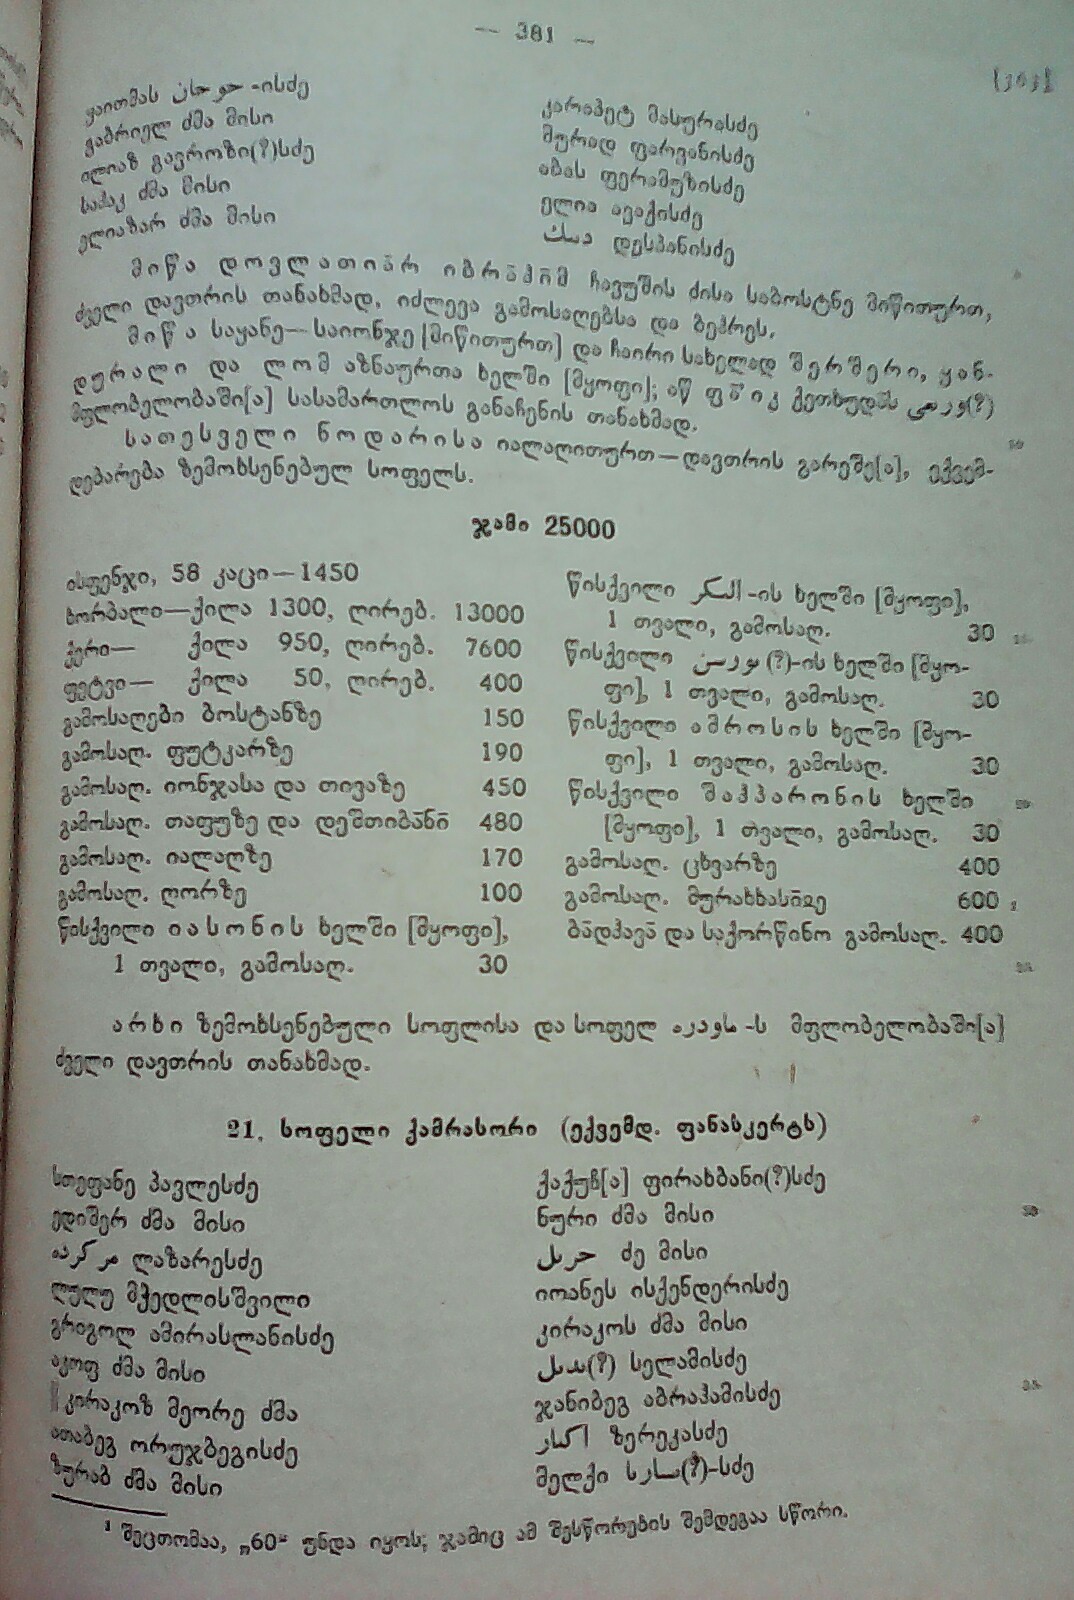 — 381 —
[303]
ყაითმას -ისძე
გაბრიელ ძმა მისი
ილიაზ გავროზი(?)სძე
სააკ ძმა მისი
ელიაზარ ძმა მისი
კარაპეტ მასურასძე
მურად ფარვანისძე
აბას ფერამუზისძე
ელია ავაქისძე
دسك დესპანისძე
მიწა დოვლათიარ იბრაჰიმ ჩავუშის ძისა საბოსტნე მიწითურთ,
ძველი დავთრის თანახმად, იძლევა გამოსაღებსა და ბეჰრეს.
მიწა საყანე—საიონჯე [მიწითურთ] და ჩაირი სახელად შერშერი, ყან-
დურალი და ლომ აზნაურთა ხელში [მყოფი]; აწ ქეთხუდას (?)
მფლობელობაში[ა] სასამართლოს განაჩენის თანახმად.
სათესველი ნოდარისა იალაღითურთ—დავთრის გარეშე[ა], ექვემ-
დებარება ზემოხსენებულ სოფელს.
ჯამი 25000
ისფენჯი, 58 კაცი—1450
ხორბალი—ქილა 1300, ღირებ. 13000
ქერი— ქილა 950, ღირებ. 7600
ფეტვი— ქილა 50, ღირებ. 400
გამოსაღები ბოსტანზე 150
გამოსაღ. ფუტკარზე 190
გამოსაღ. იონჯასა და თივაზე 450
გამოსაღ. თაფუზე და დეშთიბანი 480
გამოსაღ. იალაღზე 170
გამოსაღ. ღორზე 100
წისქვილი იასონის ხელში [მყოფი],
1 თვალი, გამოსაღ. 30
წისქვილი -ის ხელში [მყოფი],
1 თვალი, გამოსაღ. 30
წისქვილი (?)-ის ხელში [მყო-
ფი], 1 თვალი, გამოსაღ. 30
წისქვილი ამროსის ხელში [მყო-
ფი], 1 თვალი, გამოსაღ. 30
წისქვილი შაჰპარონის ხელში
[მყოფი], 1 თვალი, გამოსაღ. 30
გამოსაღ. ცხვარზე 400
გამოსაღ. მურახხასიჲე 600 ¹
ბადჰავა და საქორწინო გამოსაღ. 400
არხი ზემოხსენებული სოფლისა და სოფელ -ს მფლობელობაში[ა]
ძველი დავთრის თანახმად.
21. სოფელი ქამრასორი (ექვემდ. ფანასკერტს)
სთეფანე პავლესძე
ედიშერ ძმა მისი
ლაზარესძე
ლულუ მჭედლისშვილი
გრიგოლ ამირასლანისძე
აკოფ ძმა მისი
კირაკოზ მეორე ძმა
ათაბეგ ორუჯბეგისძე
ზურაბ ძმა მისი
ქაქუჩ[ა] ფირახბანი(?)სძე
ნური ძმა მისი
ძე მისი
იოანეს ისქენდერისძე
კირაკოს ძმა მისი
(?) სელამისძე
ჯანიბეგ აბრაჰამისძე
ზერეკასძე
მელქი (?)-სძე
¹ შეცთომაა, „60“ უნდა იყოს; ჯამიც ამ შესწორების შემდეგაა სწორი.